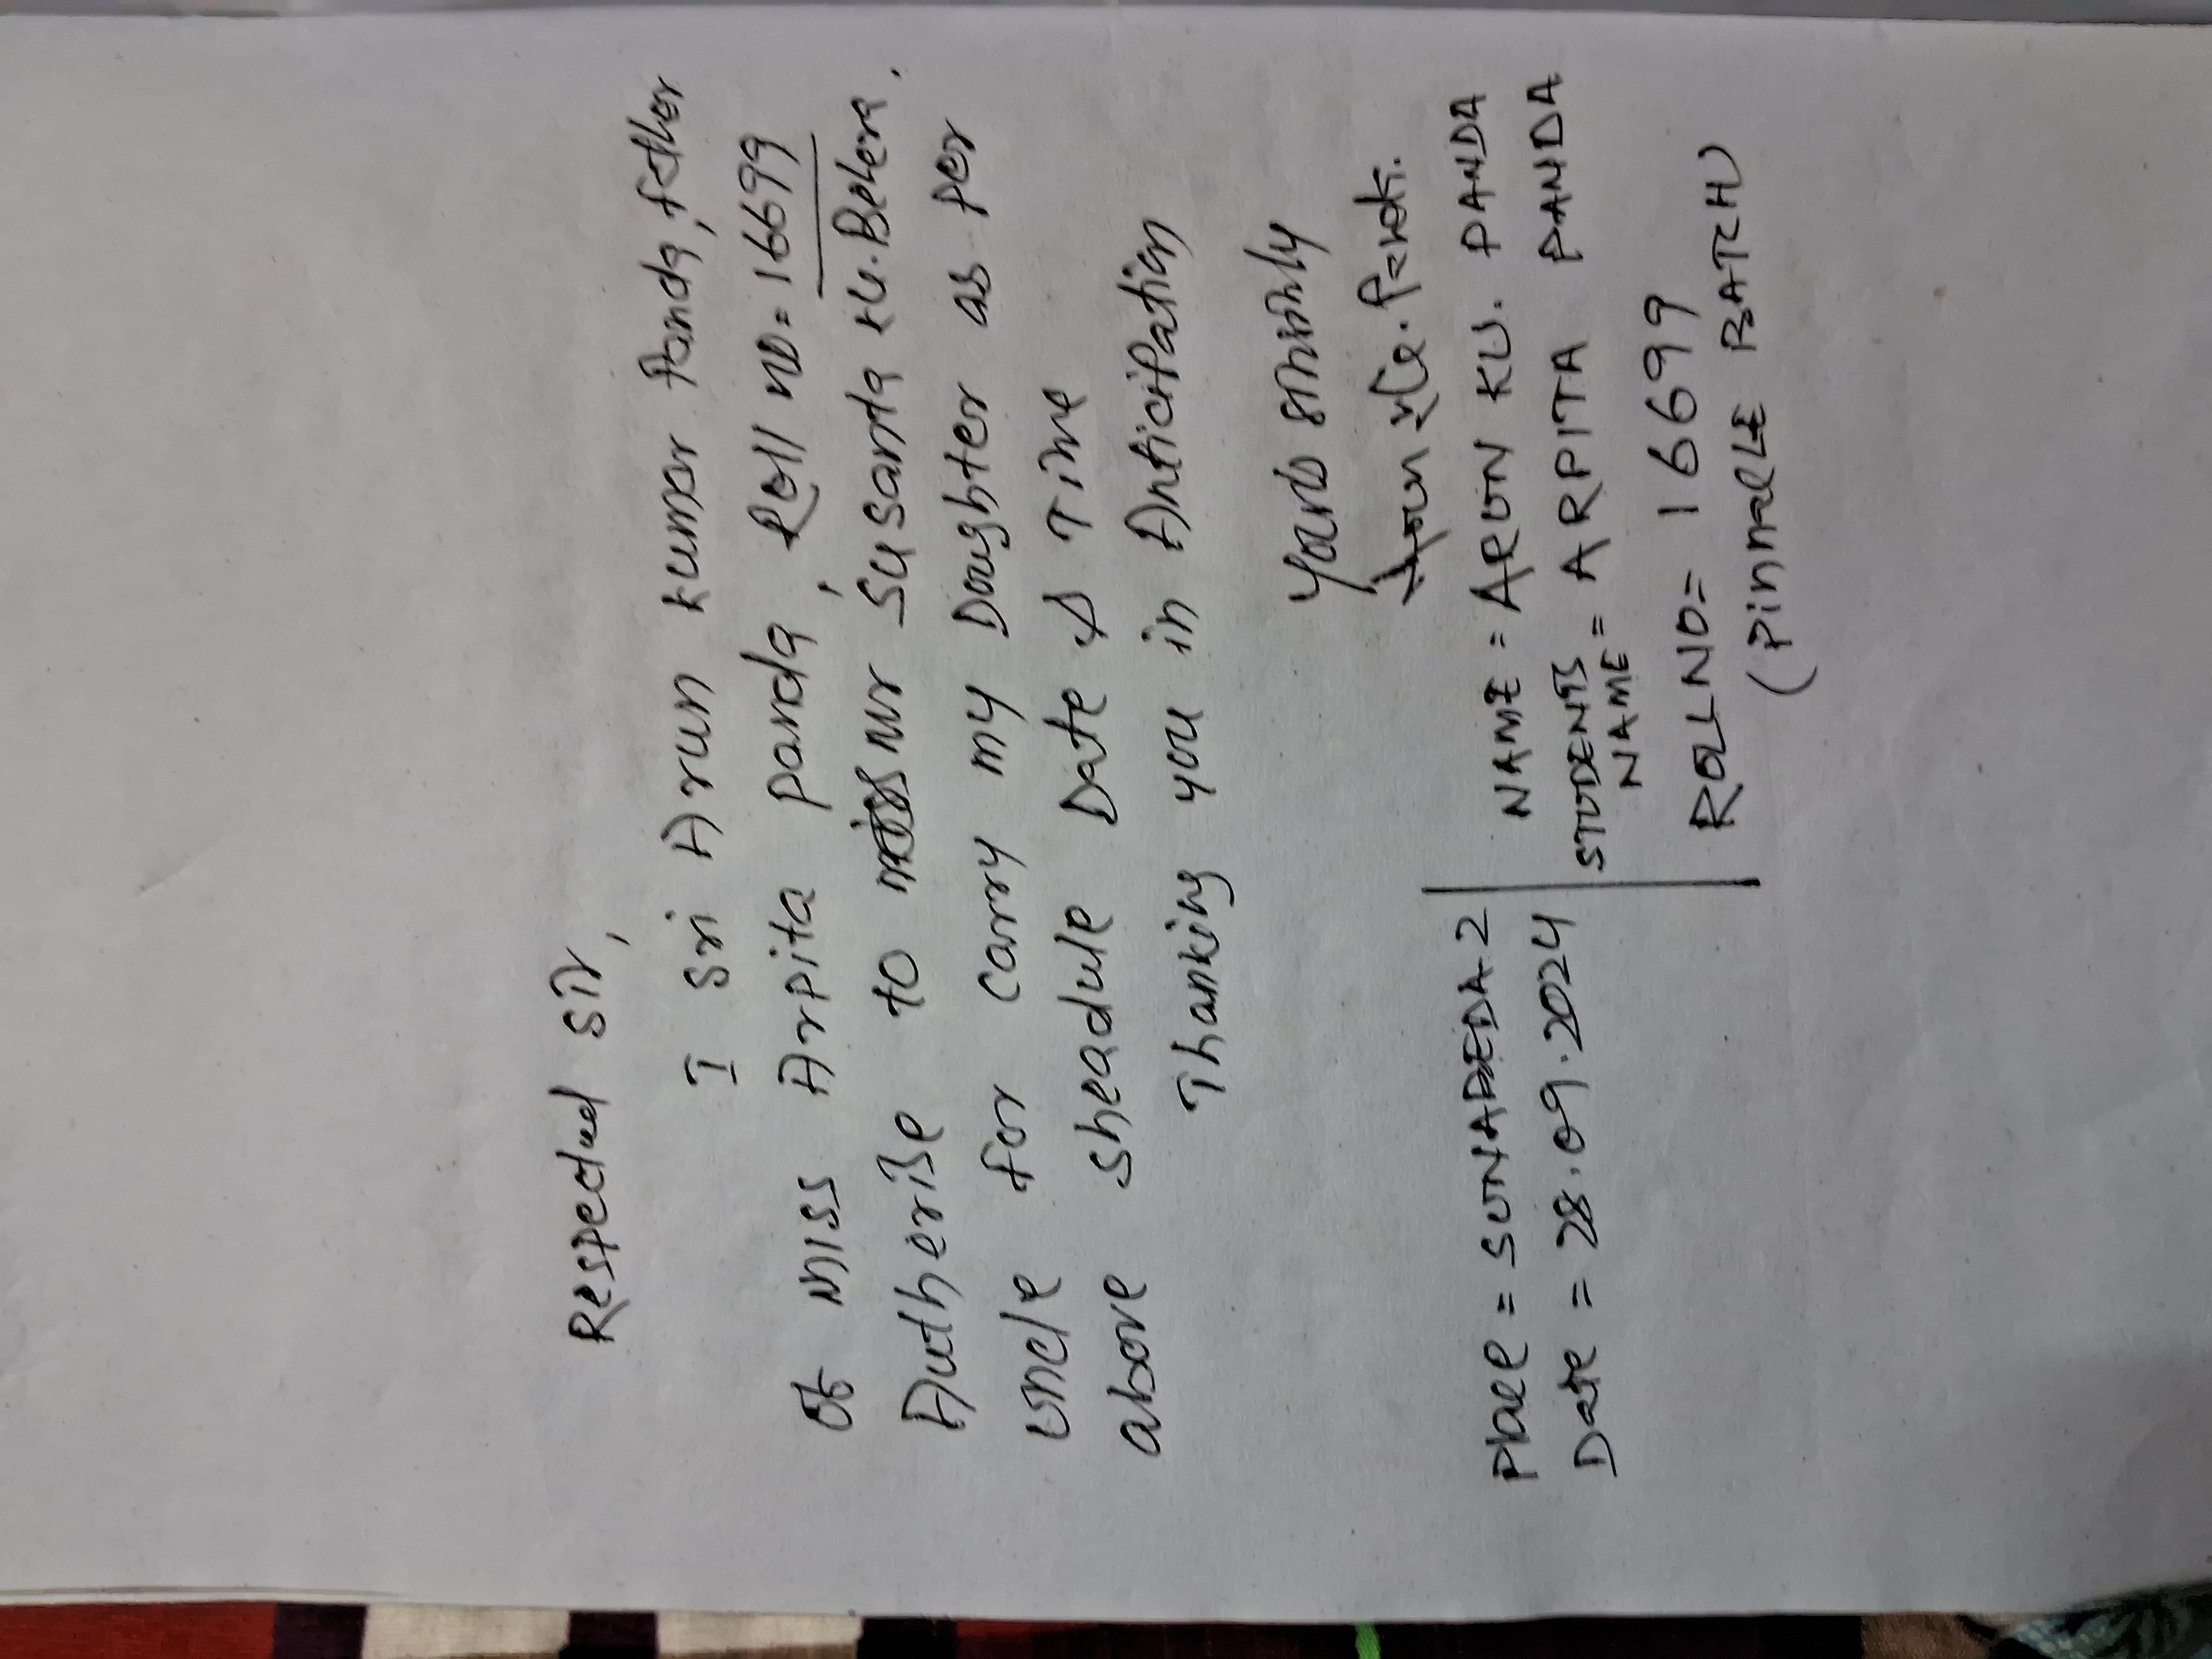 Respected sir,
I sri Arun kumar Panda, father
of miss Arpita panda, Roll no = 16699
Autherise to mr Susanta ku. Behera.
uncle for carry my Doughter as per
above sheadule Date & Time
Thanking you in Anticipation
yours
Arun Ku. Panda.
Place = SUNABEDA-2
Date = 28.09.2024
NAME = ARUN KU. PANDA
STUDENTS NAME = ARPITA PANDA
ROLL NO = 16699
(PinnaclE BATCH)